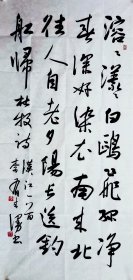 溶溶漾漾白鸥飞绿净
春深好染衣南来北
往人自老夕阳长送钓
船归 杜牧诗 汉江一首